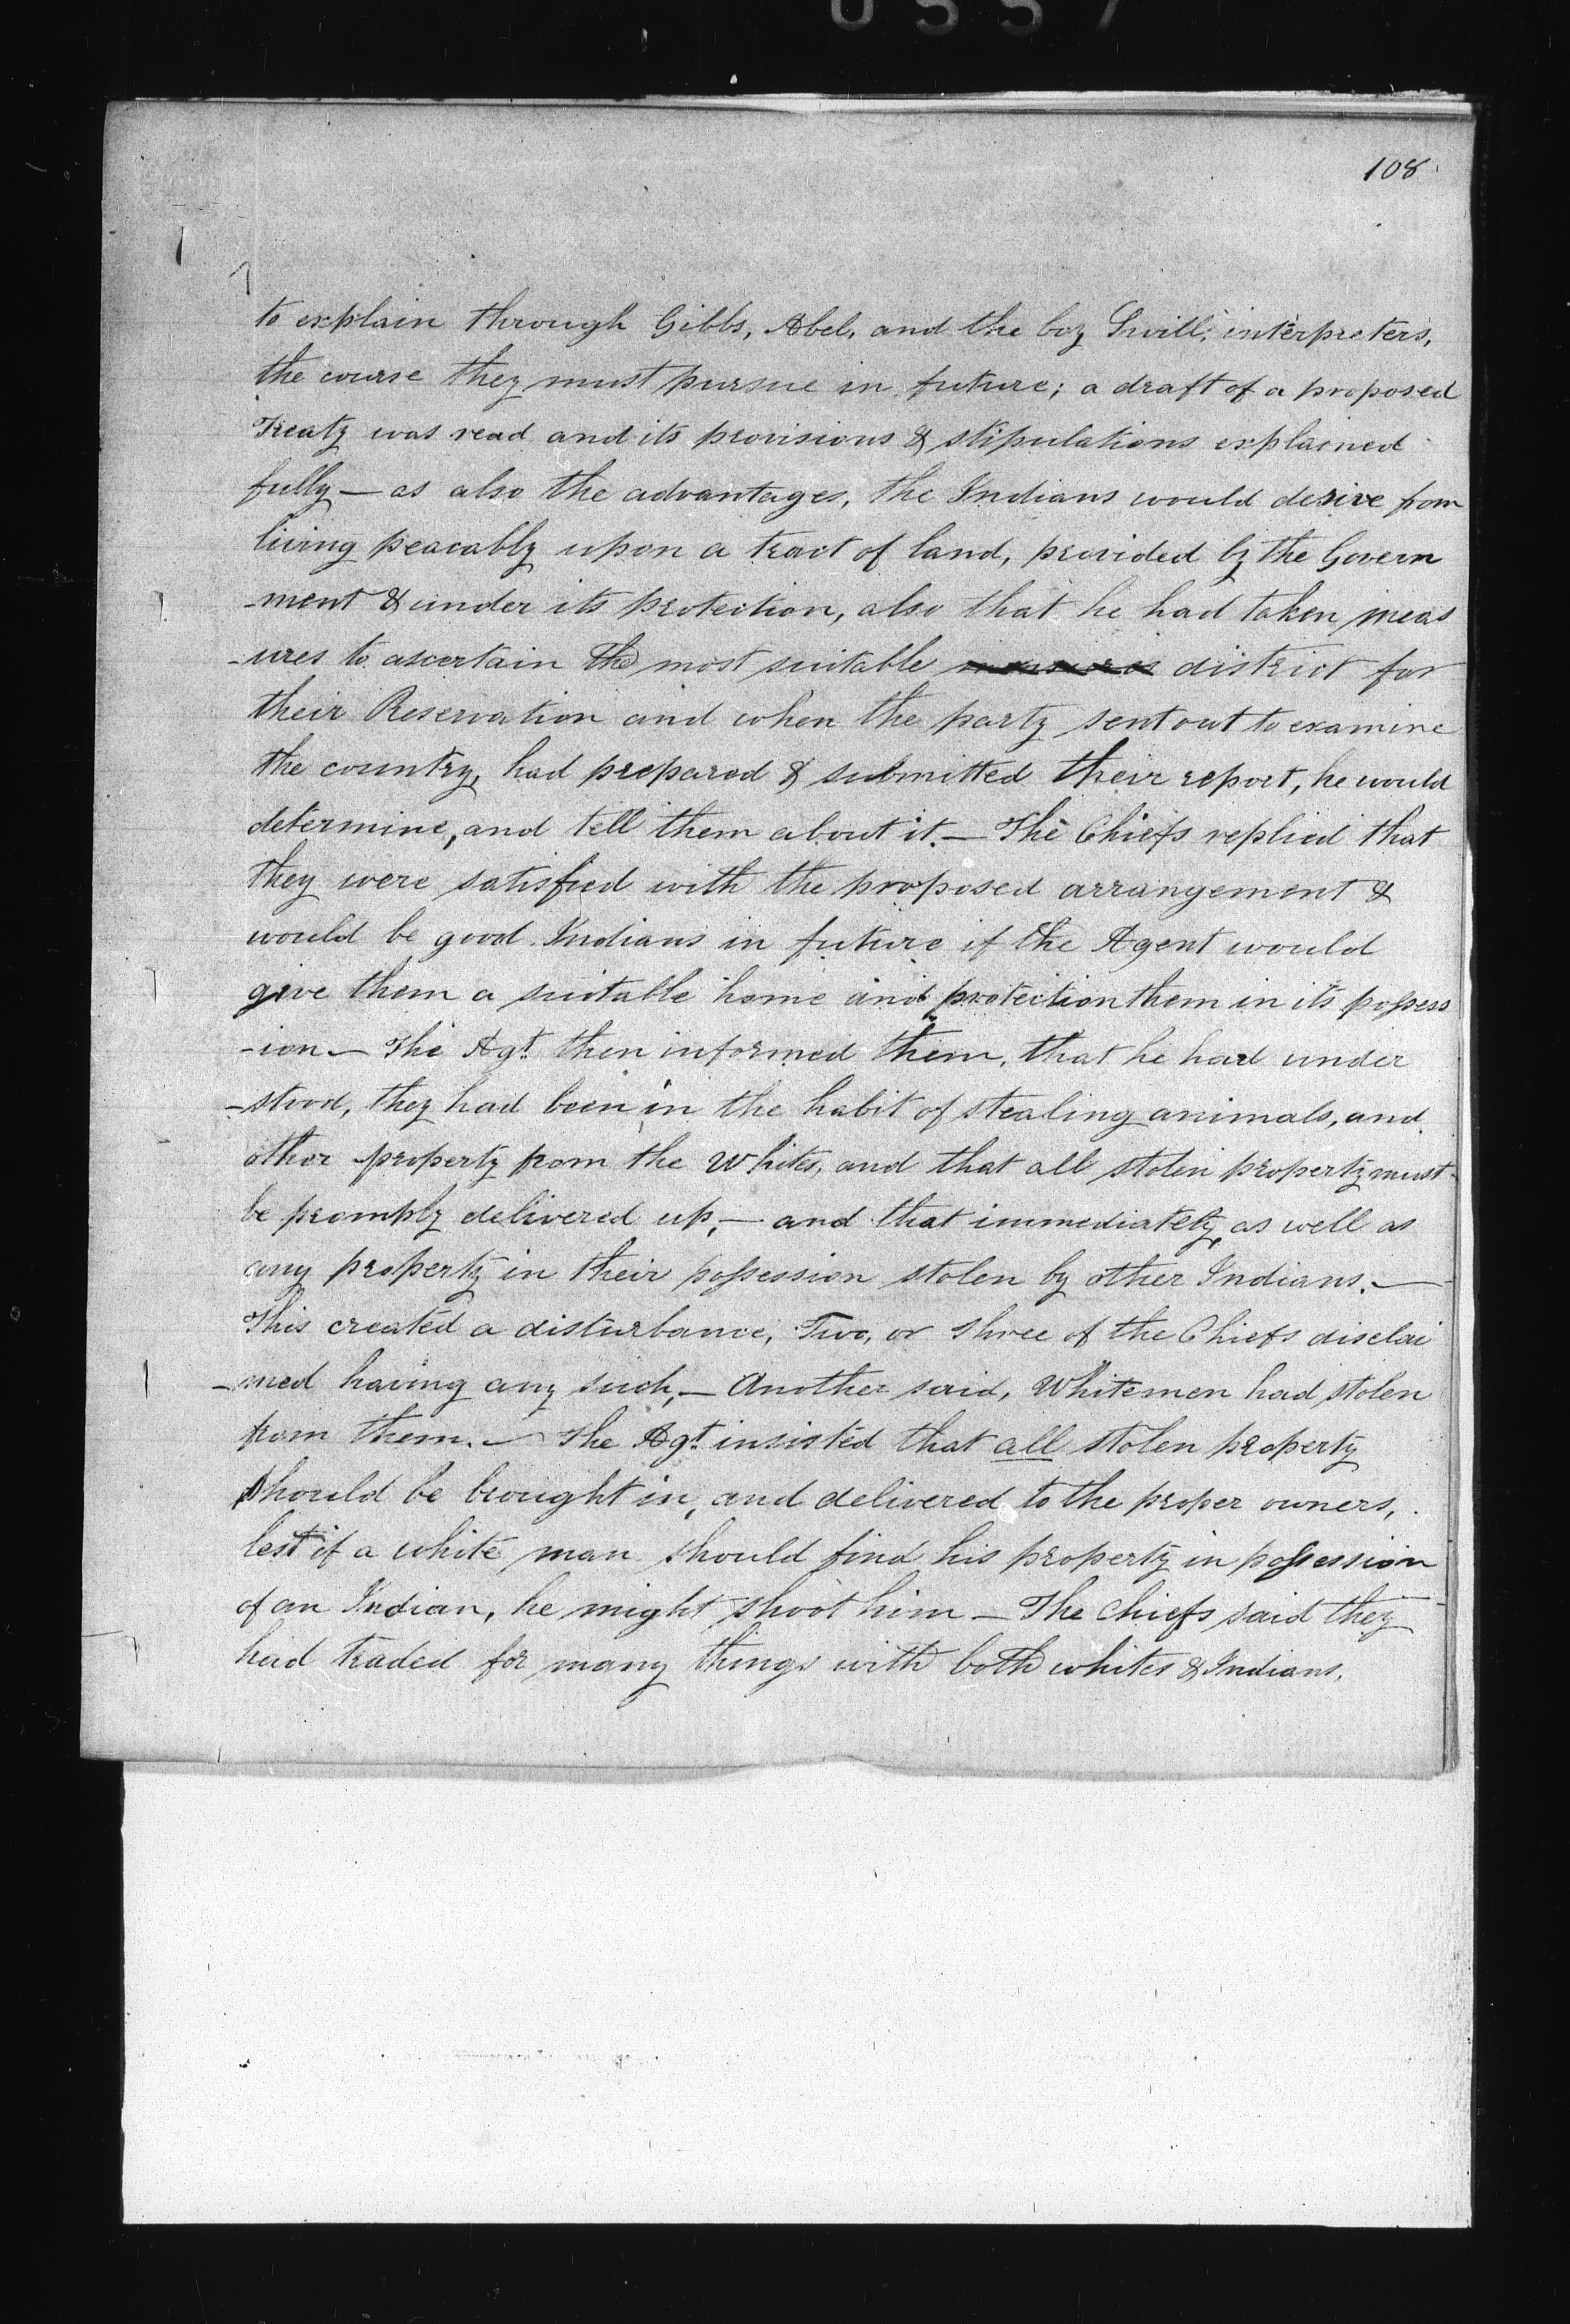 108
to explain through Gibbs, Abel, and the boy Swill, interpreters,
the course they must pursue in future; a draft of a proposed
Treaty was read and its provisions & stipulations explained
fully — as also the advantages, the Indians would derive from
living peacably upon a tract of land, provided by the Govern
-ment & under its protection, also that he had taken meas
-ures to ascertain the most suitable measures district for
their Reservation and when the party sent out to examine
the country, had prepared & submitted their report, he would
determine, and tell them about it. — The Chiefs replied that
they were satisfied with the proposed arrangement &
would be good Indians in future if the Agent would
give them a suitable home and protection them in its possess
-ion — The Agt. then informed them, that he had under
-stood, they had been in the habit of stealing animals, and
other property from the Whites, and that all stolen property must
be promply delivered up, — and that immediately, as well as
any property in their possession stolen by other Indians. —
This created a disturbance, Two, or three of the Chiefs disclai
-med having any such, — Another said, Whitemen had stolen
from them. — The Agt. insisted that all stolen property
should be brought in, and delivered to the proper owners,
lest if a white man should find his property in possession
of an Indian, he might shoot him — The Chiefs said they
had traded for many things with both whites & Indians,